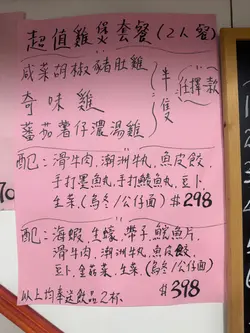 超值雞煲套餐(2人餐)
咸菜胡椒豬肚雞
奇味雞
蕃茄薯仔濃湯雞
半隻
任擇一款
配:滑牛肉,潮洲牛丸,魚皮餃,
手打墨魚丸,手打鯪魚丸,豆卜,
生菜(烏冬/公仔面) $298
配:海蝦,生蠔,帶子,鯇魚片,
滑牛肉,潮洲牛丸,魚皮餃,
豆卜,金菇菜,生菜(烏冬/公仔面)
以上均奉送飲品2杯. $398